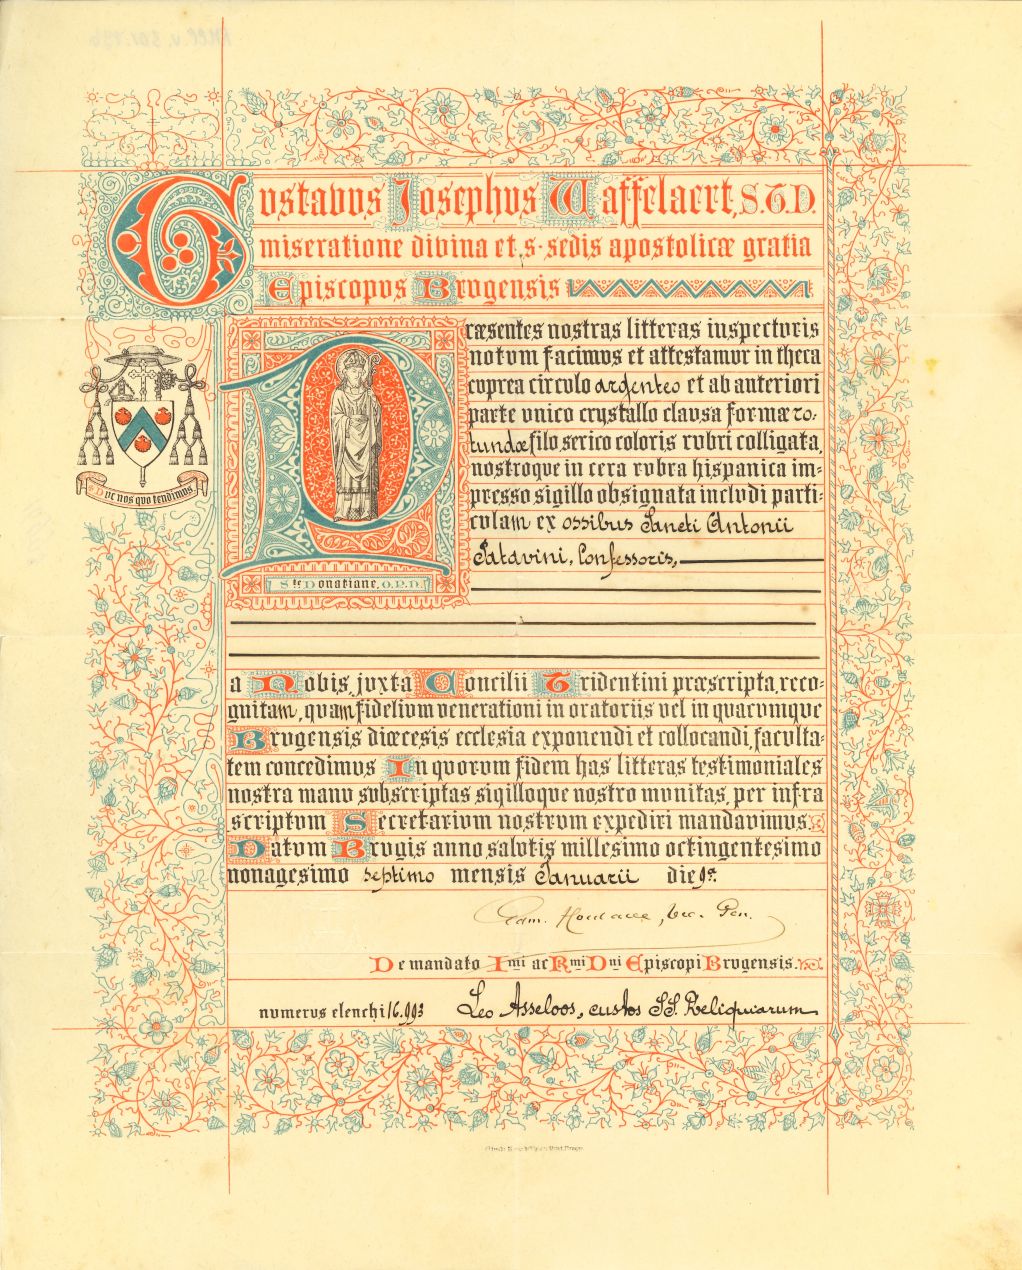 Gustavus Josephus Waffelaert, S.T.D.
miseratione divina et s. sedis apostolicæ gratia
Episcopus Brugensis
Præsentes nostras litteras inspecturis
notum facimus et attestamur in theca
cuprea circulo argenteo et ab anteriori
parte unico crystallo clausa formæ ro-
tundæ filo serico coloris rubri colligata,
nostroque in cera rubra hispanica im-
presso sigillo obsignata includi parti-
culam ex ossibus Sancti Antonii
Patavini, Confessoris,
Duc nos quo tendimus
Ste Donatiane, O.P.N.
a Nobis, juxta Concilii Tridentini præscripta, reco-
gnitam, quam fidelium venerationi in oratoriis vel in quacumque
Brugensis diœcesis ecclesia exponendi et collocandi, faculta-
tem concedimus In quorum fidem has litteras testimoniales
nostra manu subscriptas sigilloque nostro munitas, per infra
scriptum Secretarium nostrum expediri mandavimus.
Datum Brugis anno salutis millesimo octingentesimo
nonagesimo septimo mensis Januarii die 9a.
De mandato Imi ac Rmi Dni Episcopi Brugensis.
numerus elenchi 16.993
Leo Asseloos, custos SS. Reliquiarum